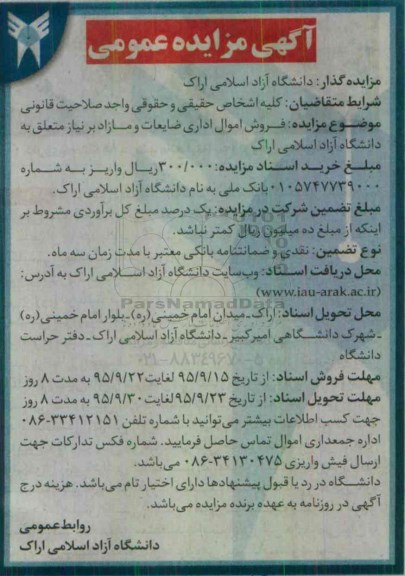 آگهی مزایده عمومی
مزایده گذار: دانشگاه آزاد اسلامی اراک
شرایط متقاضیان: کلیه اشخاص حقیقی و حقوقی واجد صلاحیت قانونی
موضوع مزایده: فروش اموال اداری ضایعات و مازاد بر نیاز متعلق به
دانشگاه آزاد اسلامی اراک
مبلغ خرید اسناد مزایده: ۳۰۰/۰۰۰ریال واریز به شماره
۰۱۰۵۷۴۷۷۳۹۰۰۰بانک ملی به نام دانشگاه آزاد اسلامی اراک.
مبلغ تضمین شرکت در مزایده: یک درصد مبلغ کل برآوردی مشروط بر
اینکه از مبلغ ده میلیون ریال کمتر نباشد.
نوع تضمین: نقدی و ضمانتنامه بانکی معتبر با مدت زمان سه ماه.
محل دریافت اسناد: وب‌سایت دانشگاه آزاد اسلامی اراک به آدرس:
(www.iau-arak.ac.ir)
ParsNamadData
محل تحویل اسناد: اراک ـ میدان امام خمینی(ره)ـ بلوار امام خمینی(ره)
ـ شهرک دانشگاهی امیرکبیر ـ دانشگاه آزاد اسلامی اراک ـ دفتر حراست
دانشگاه
۰۲۱-۸۸۳۴۹۶۷۰-۵
مهلت فروش اسناد: از تاریخ ۹۵/۹/۱۵ لغایت۹۵/۹/۲۲ به مدت ۸ روز
مهلت تحویل اسناد: از تاریخ ۹۵/۹/۲۳ لغایت۹۵/۹/۳۰ به مدت ۸ روز
جهت کسب اطلاعات بیشتر می‌توانید با شماره تلفن ۳۳۴۱۲۱۵۱-۰۸۶
اداره جمعداری اموال تماس حاصل فرمایید. شماره فکس تدارکات جهت
ارسال فیش واریزی ۳۴۱۳۰۴۷۵-۰۸۶ می‌باشد.
دانشگاه در رد یا قبول پیشنهادها دارای اختیار تام می‌باشد. هزینه درج
آگهی در روزنامه به عهده برنده مزایده می‌باشد.
روابط عمومی
دانشگاه آزاد اسلامی اراک